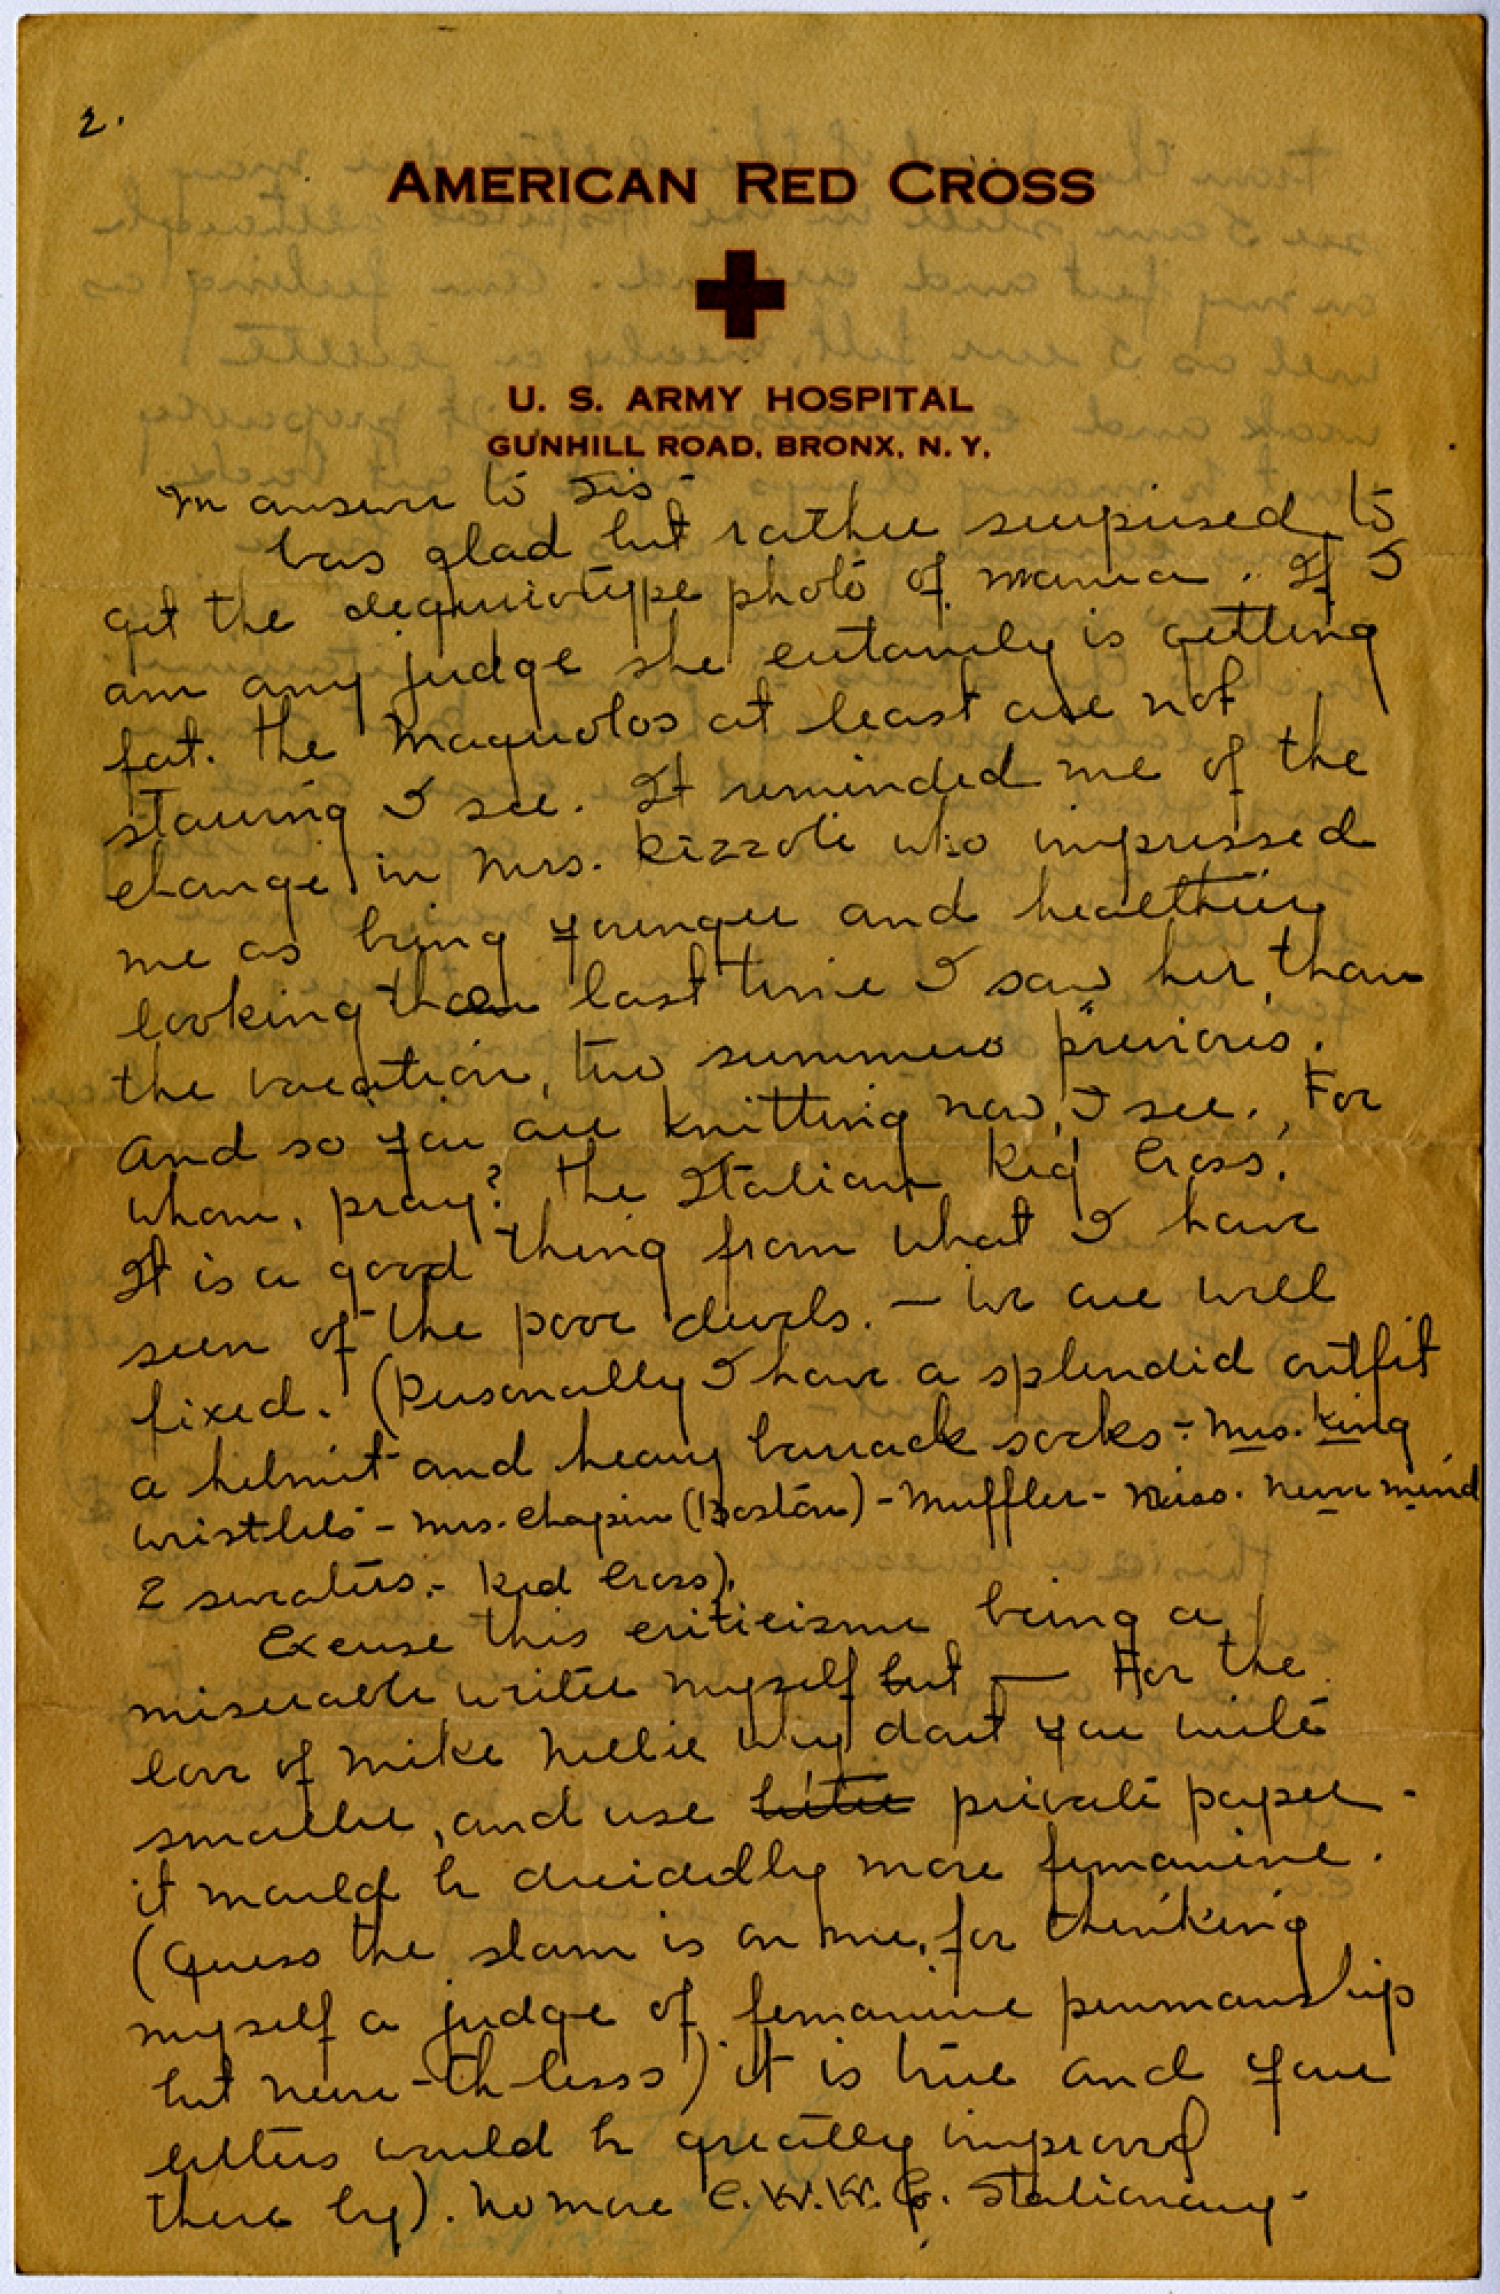 2.
AMERICAN RED CROSS
U. S. ARMY HOSPITAL
GUNHILL ROAD, BRONX, N. Y.
In answer to Sis-
Was glad but rather surprised to
get the photo of mama. If I
am any judge she certainly is getting
fat. The at least are not
starving I see. It reminded me of the
change in Mrs. Rizzoli who impressed
me as being younger and healthier
looking than last time I saw her, than
the vacation, two summers previous.
And so you are knitting now, I see. For
whom, pray? The Italian Red Cross.
It is a good thing from what I have
seen of the poor devils. — We are well
fixed. (Personally I have a splendid outfit
a helmit and heavy barrack socks - Mrs. King
wristlets - Mrs. Chapin (Boston) - Muffler - Miss. Never mind
2 sweaters. - Red Cross).
Excuse this criticisme being a
miserable writer myself but — For the
love of Mike Nellie why dont you write
smaller, and use private paper.
it would be decidedly more femanine.
(Guess the slam is on me, for thinking
myself a judge of femanine penmanship
but never-th-less) it is true and your
letters would be greatly improved
there by). No more C.W.W.Co. Stationary-